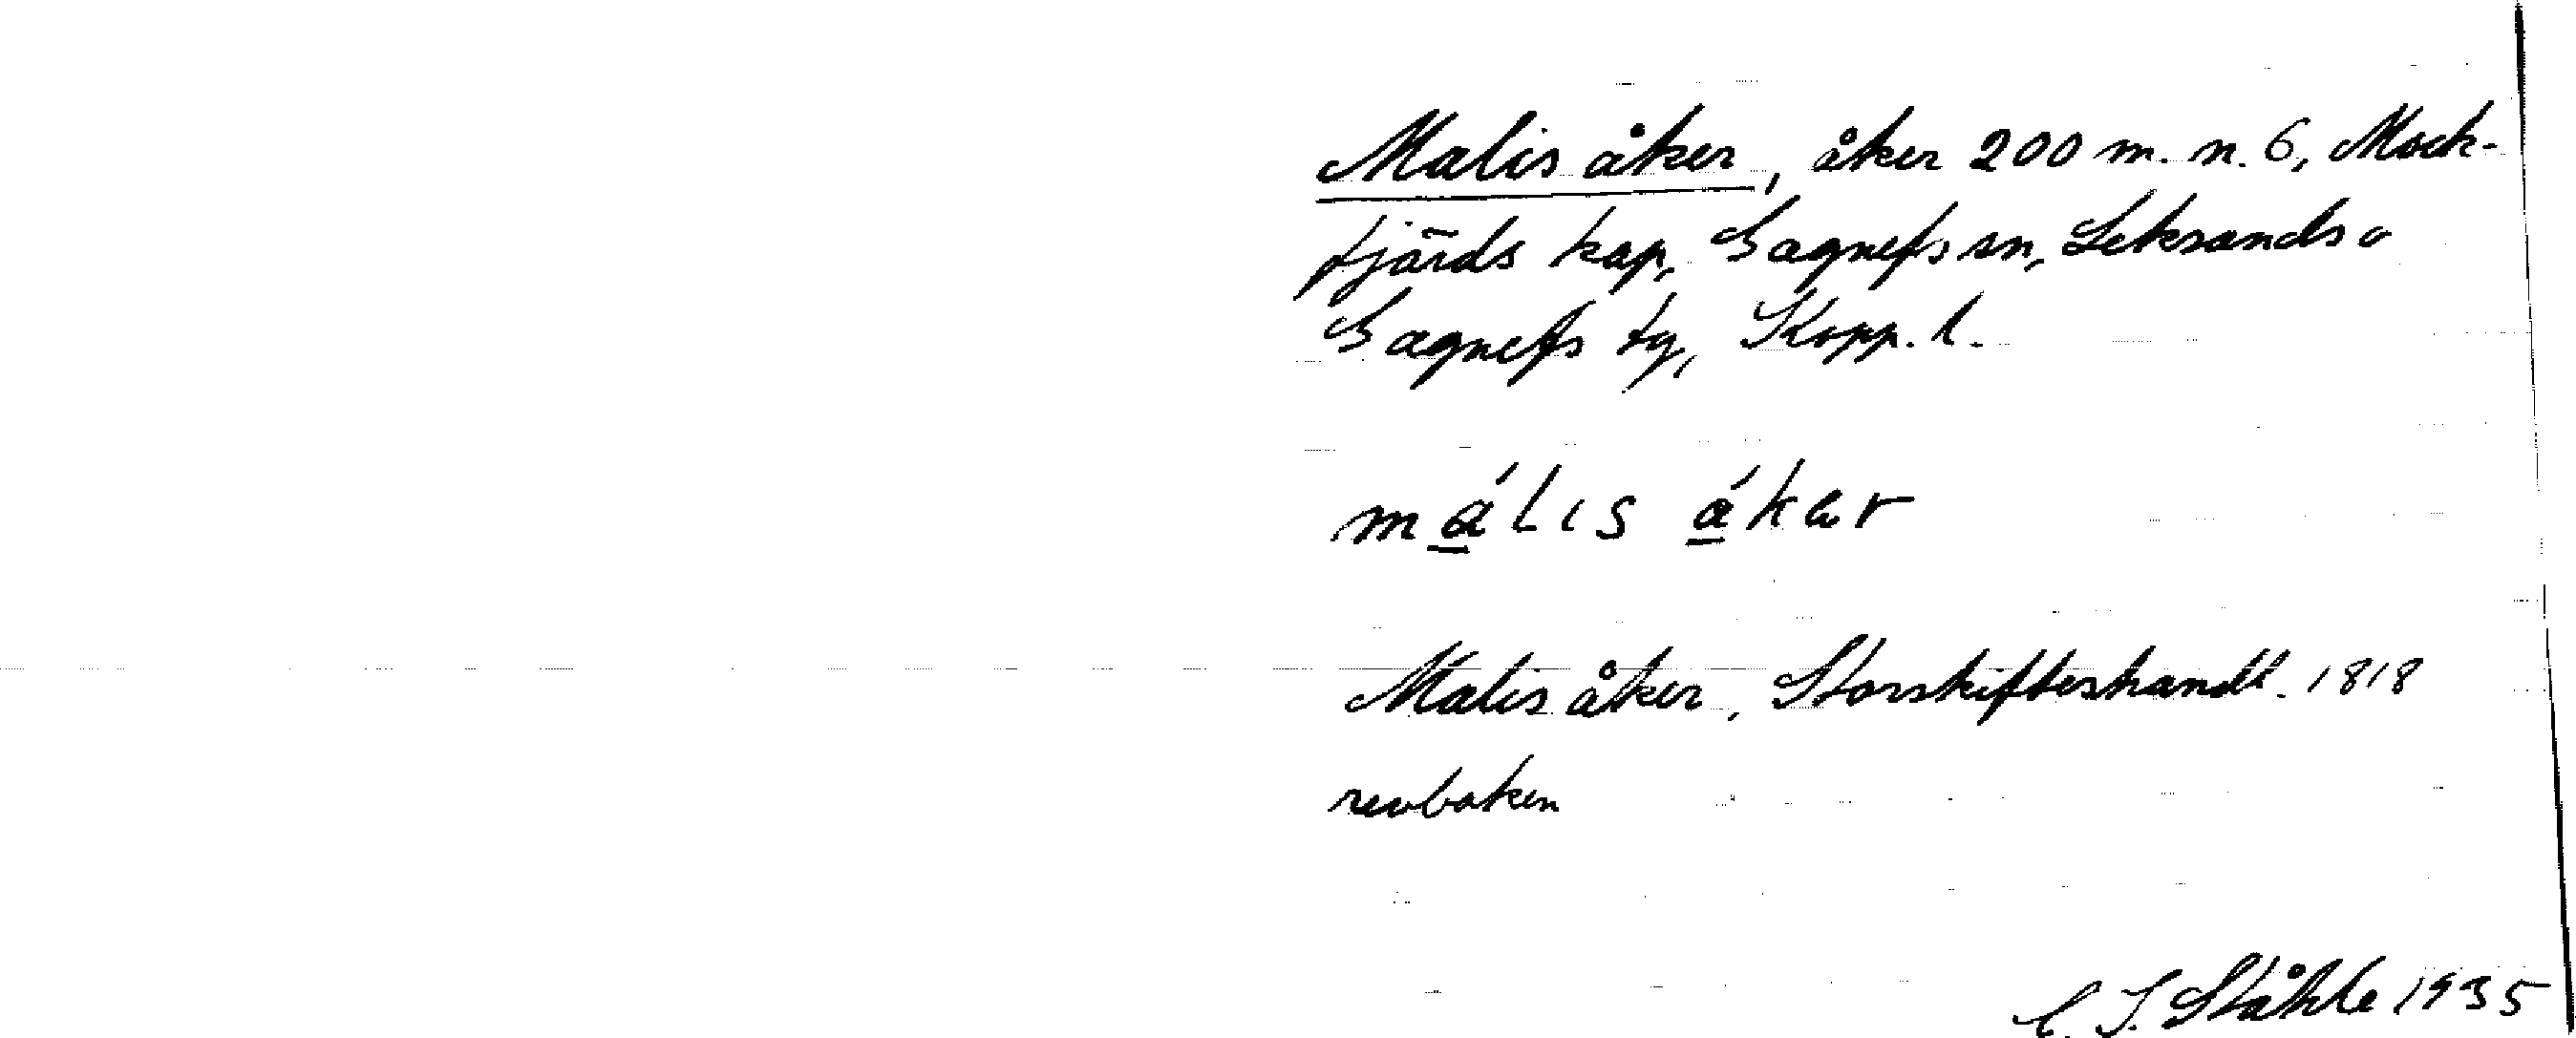 Malis åker, åker 200 m. n. 6, Mock-
fjärds kap, Gagnefs sn, Leksands o
Gagnefs tg, Kopp. l.
málıs ákər
Malis åker, Storskifteshandl. 1818
revboken
C. I. Ståhle 1935